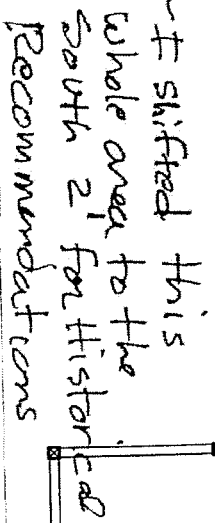 -I shifted this
whole area to the
South 2' for Historical
Recommendations